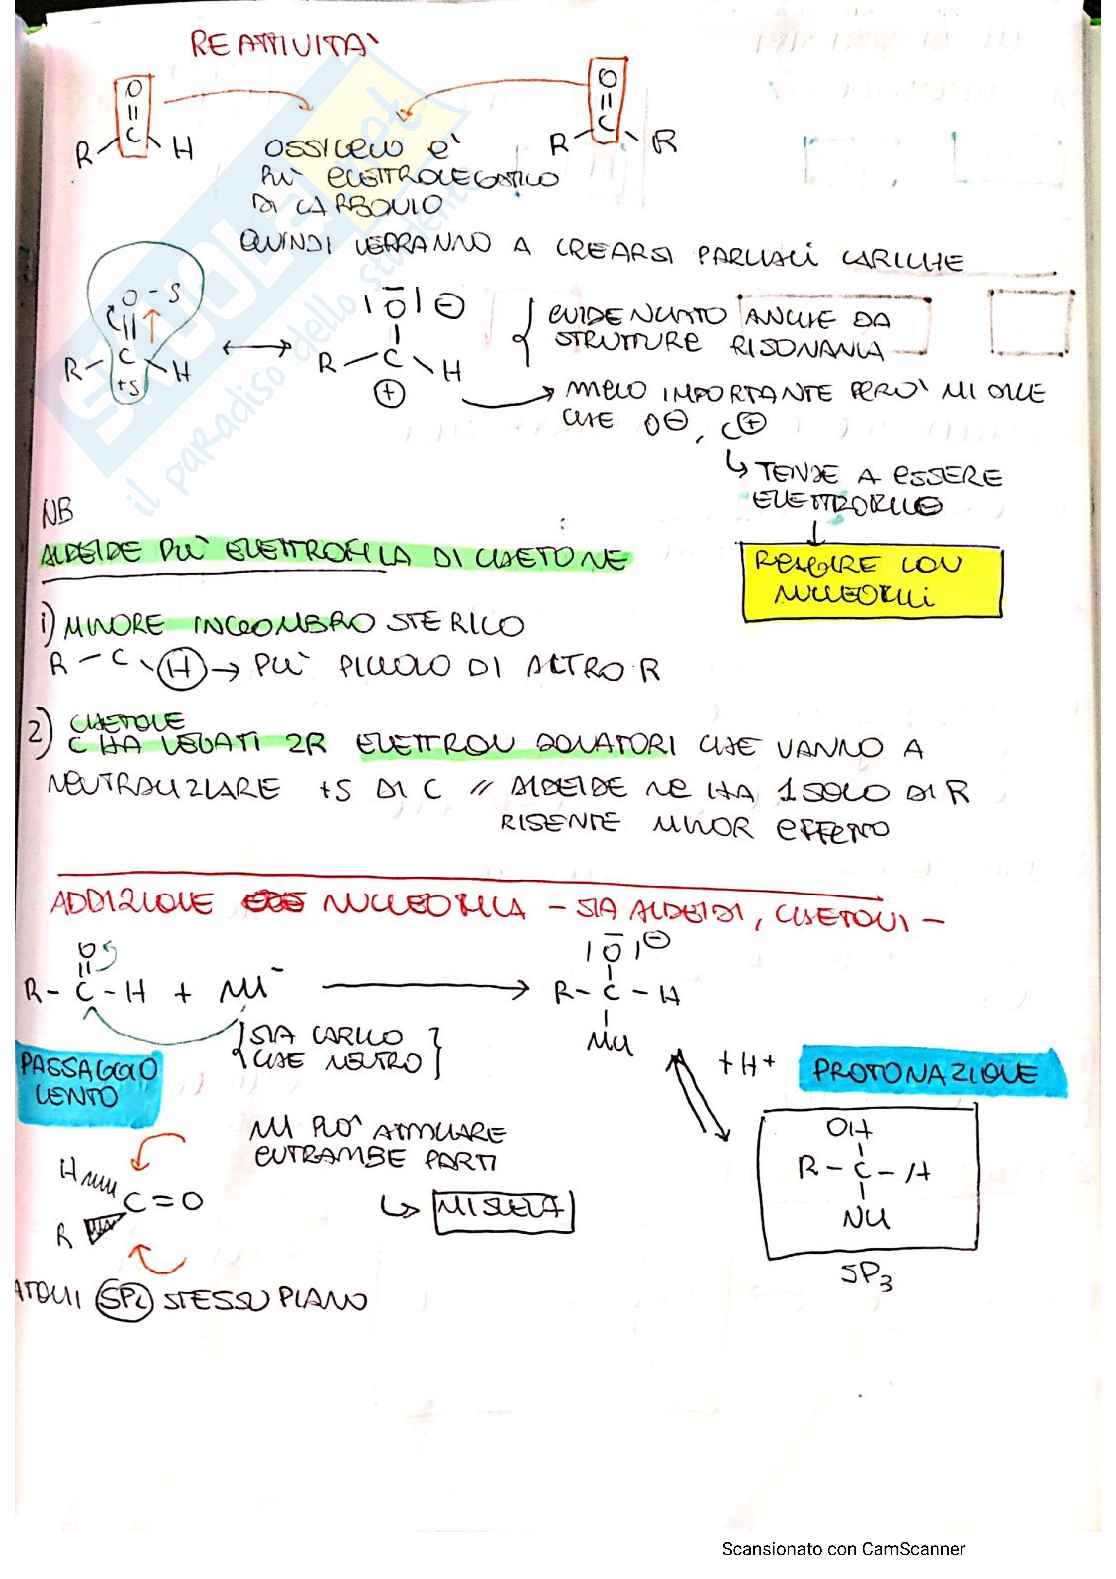 REATTIVITÀ
O
O
||
||
C
C
R
H
R
R
OSSIGENO E'
PIÙ ELETTRONEGATIVO
DI CARBONIO
QUINDI VERRANNO A CREARSI PARZIALI CARICHE
O - δ
||
R C H
+δ
|O|⊖
R - C - H
⊕
EVIDENZIATO ANCHE DA
STRUTTURE RISONANZA
→ MENO IMPORTANTE PERÒ MI DICE
CHE O⊖, C⊕
↳ TENDE A ESSERE
ELETTROFILO
REAGIRE CON
NUCLEOFILI
NB
ALDEIDE PIÙ ELETTROFILA DI CHETONE
1) MINORE INGOMBRO STERICO
R - C - H → PIÙ PICCOLO DI ALTRO R
2) CHETONE
C HA LEGATI 2R ELETTRON DONATORI CHE VANNO A
NEUTRALIZZARE +δ DI C // ALDEIDE NE HA 1 SOLO DI R
RISENTE MINOR EFFETTO
ADDIZIONE NUCLEOFILA - SIA ALDEIDI, CHETONI -
O
||
R - C - H + Nu⁻ → R - C - H
|O|⊖
Nu
SIA CARICO
CHE NEUTRO
PASSAGGIO
LENTO
+H+
PROTONAZIONE
NU PUÒ ATTACCARE
ENTRAMBE PARTI
↳ MISCELA
H
C=O
R
OH
R - C - H
NU
SP3
ATOMI SP2 STESSO PIANO
SKUOLA.net
il paradiso dello studente
Scansionato con CamScanner